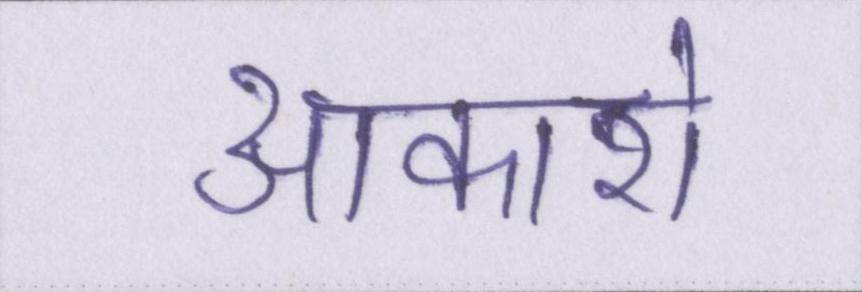 आकाशे